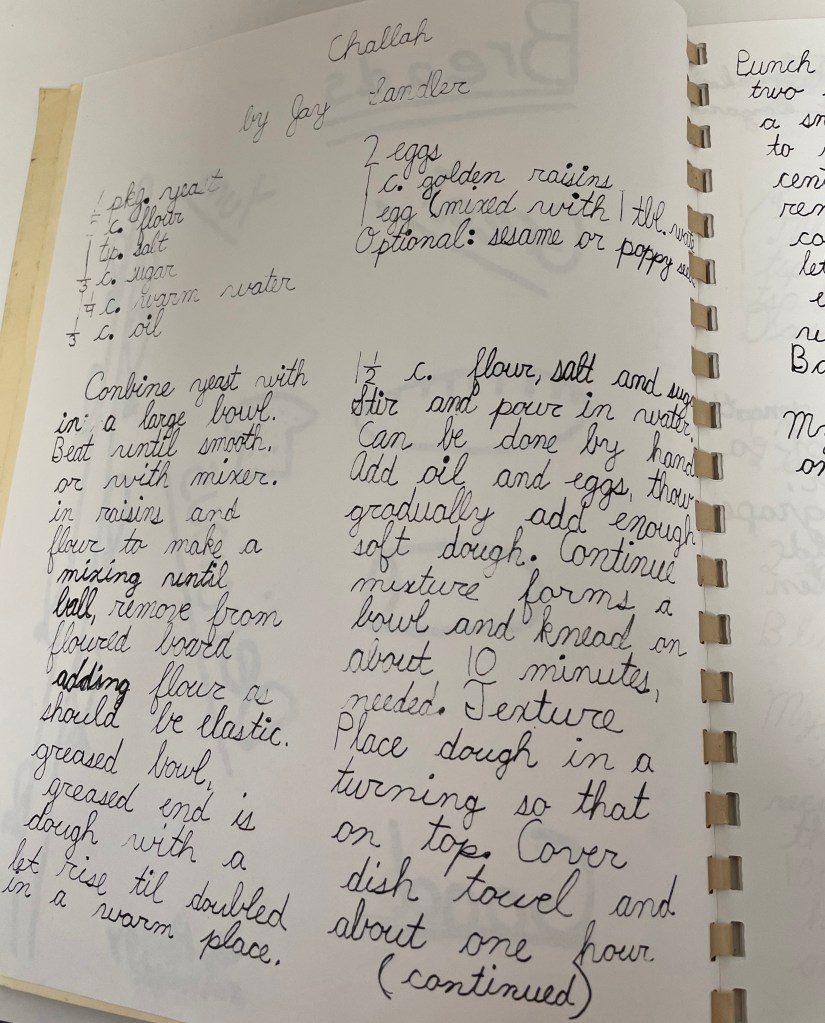 Challah
by Jay Sandler
1 pkg. yeast
c. flour
1 tsp. salt
1/3 c. sugar
1/4 c. warm water
1/3 c. oil
2 eggs
1 c. golden raisins
1 egg (mixed with 1 tbl. wate
Optional: sesame or poppy see
Conbine yeast with 1 1/2 c. flour, salt and sug
in a large bowl. Stir and pour in water.
Beat until smooth. Can be done by hand
or with mixer. Add oil and eggs, thow
in raisins and gradually add enough
flour to make a soft dough. Continue
mixing until mixture forms a
ball, remove from bowl and knead on
floured board about 10 minutes,
adding flour as needed. Texture
should be elastic. Place dough in a
greased bowl, turning so that
greased end is on top. Cover
dough with a dish towel and
let rise til doubled about one hour
in a warm place.
(continued)
Punch
two
a sm
to
cen
rem
co
let
e
Ba
on